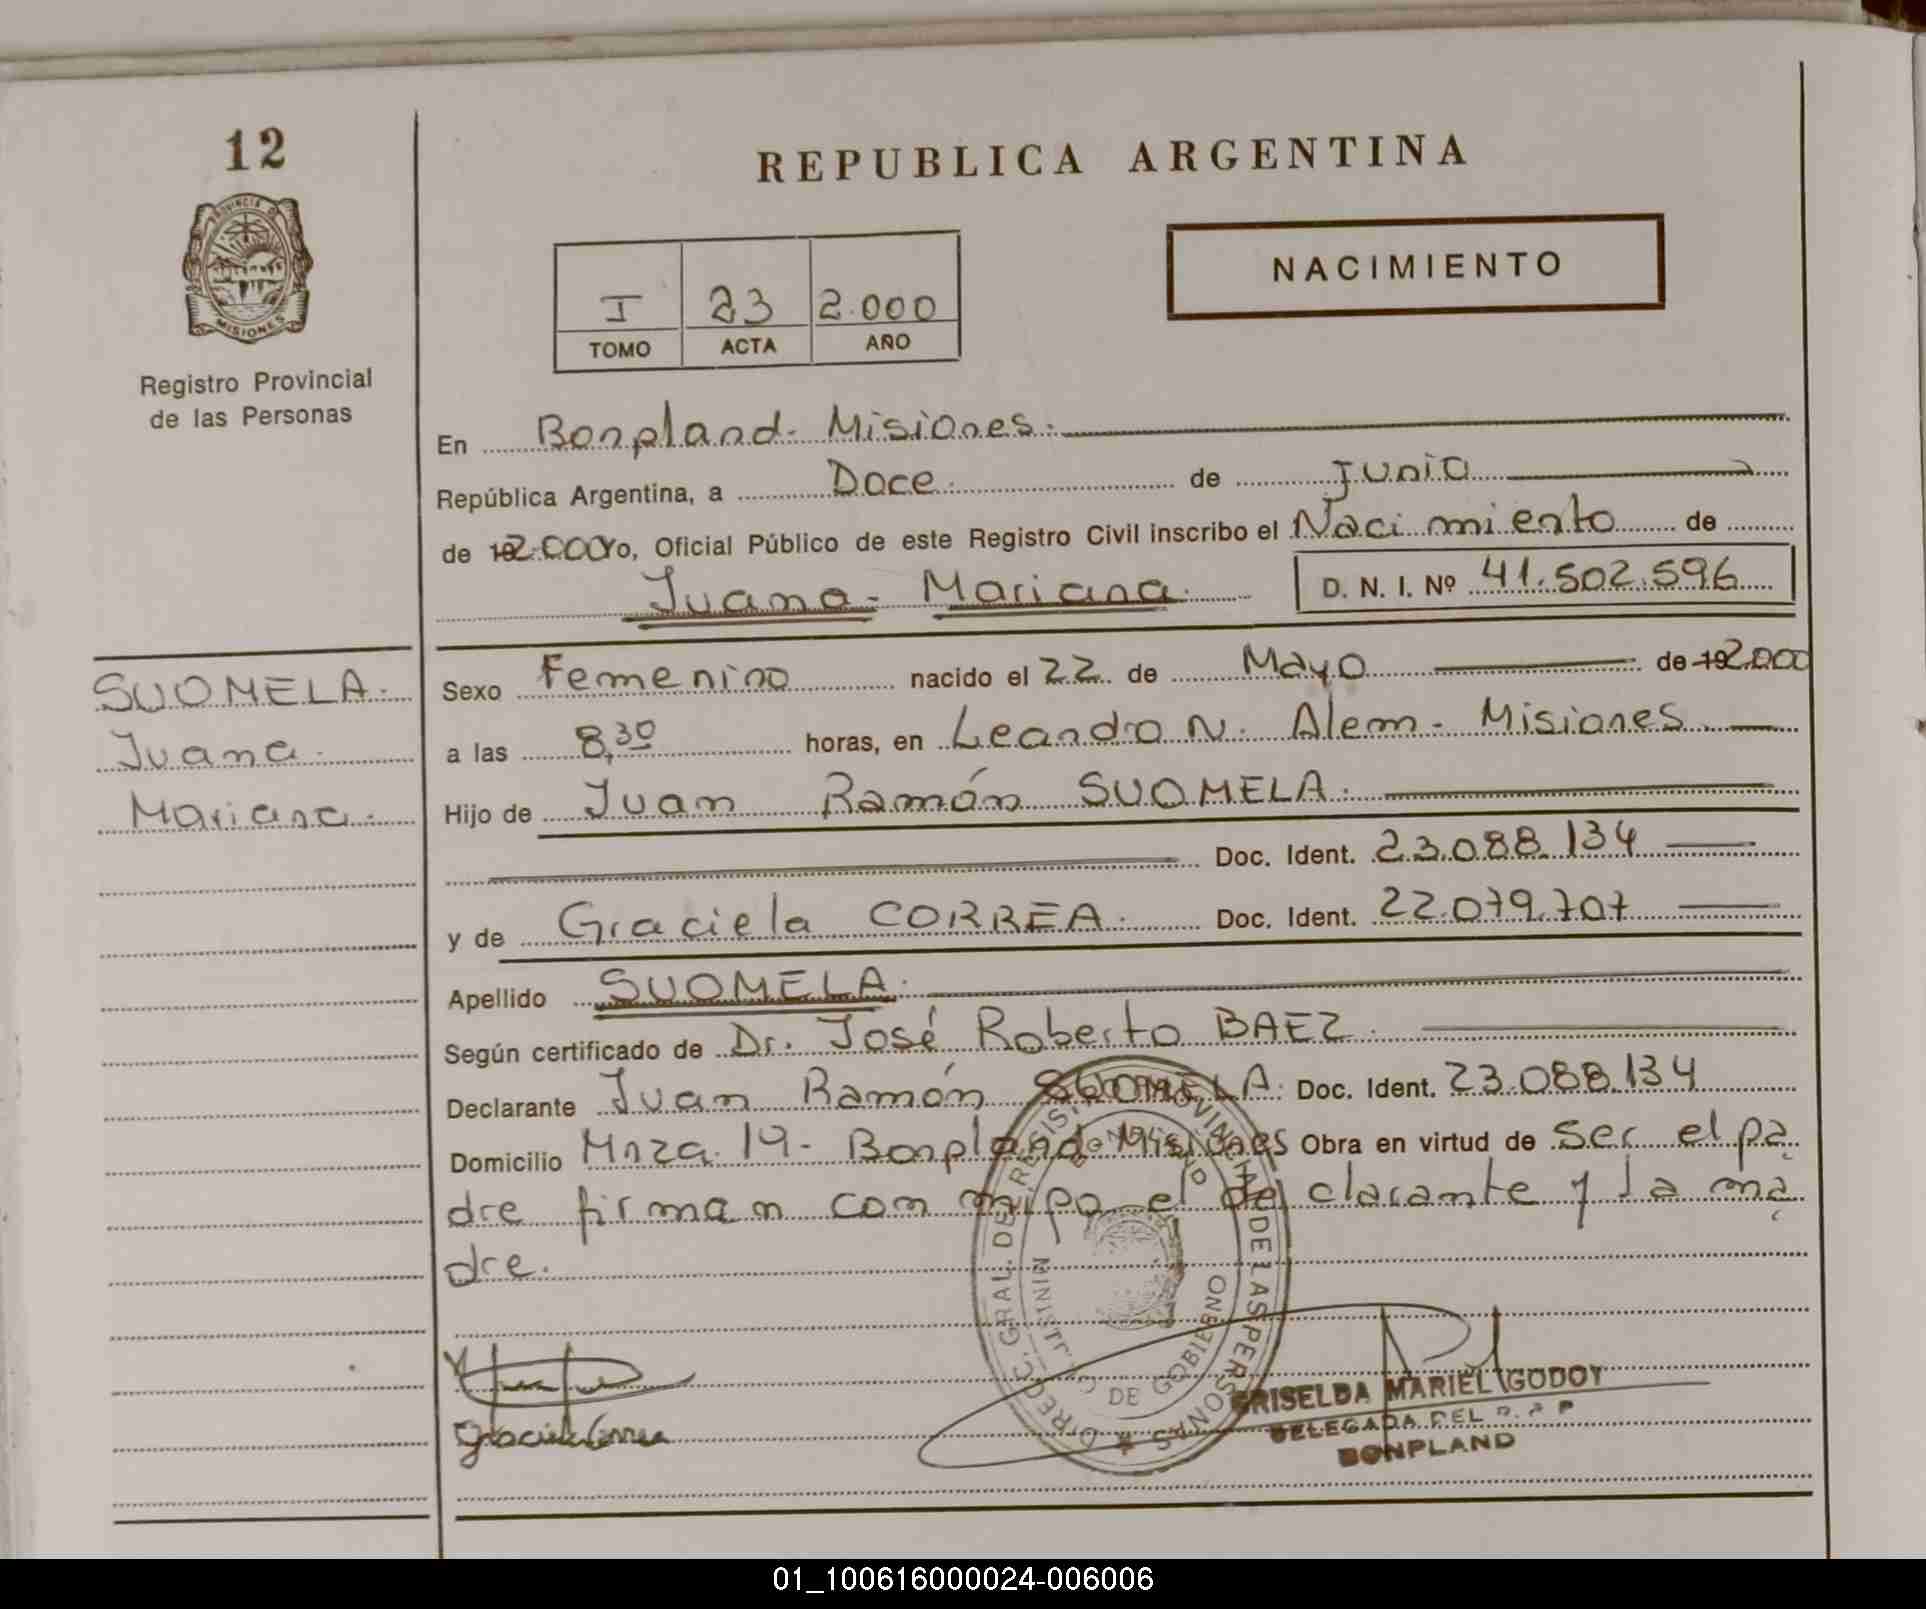 12
PROVINCIA DE
MISIONES
Registro Provincial
de las Personas
REPUBLICA ARGENTINA
I 23 2.000
TOMO ACTA AÑO
NACIMIENTO
En Bonpland. Misiones.
República Argentina, a Doce. de Junio
de 2.000 Yo, Oficial Público de este Registro Civil inscribo el Nacimiento de
Juana - Mariana. D. N. I. Nº 41.502.596
SUOMELA.
Juana.
Mariana.
Sexo Femenino nacido el 22 de Mayo de 192.000
a las 8,30 horas, en Leandro N. Alem - Misiones.
Hijo de Juan Ramón SUOMELA.
Doc. Ident. 23.088.134
y de Graciela CORREA. Doc. Ident. 22.079.707
Apellido SUOMELA.
Según certificado de Dr. José Roberto BAEZ.
Declarante Juan Ramón SUOMELA. Doc. Ident. 23.088.134
Domicilio Mnza. 19 - Bonpland Misiones Obra en virtud de ser el pa
dre firman con migo el declarante y la ma
dre.
DIREC. GRAL. DEL REGISTRO PROVINCIAL DE LAS PERSONAS
MINISTERIO DE GOBIERNO
BONPLAND
Graciela Correa
GRISELDA MARIEL GODOY
DELEGADA DEL R. P P
BONPLAND
01_100616000024-006006